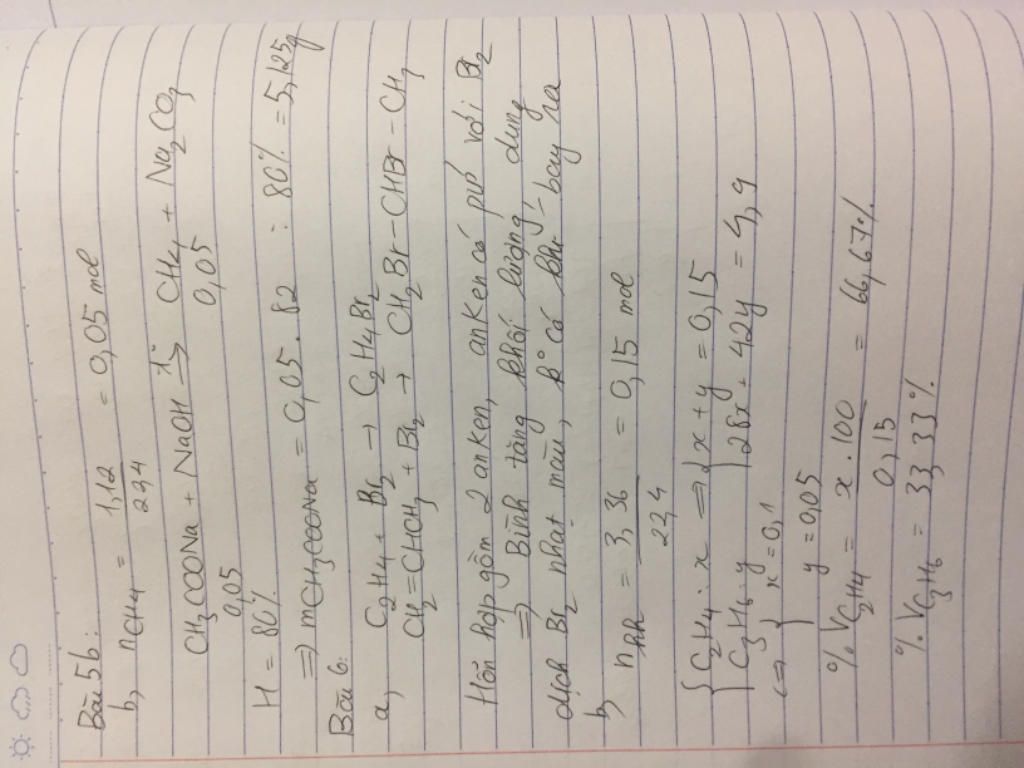 Bài 5b:
b, nCH4 = 1,12 / 22,4 = 0,05 mol
CH3COONa + NaOH -t°-> CH4 + Na2CO3
0,05 0,05
H = 80%
=> mCH3COONa = 0,05 . 82 : 80% = 5,125g
Bài 6:
a, C2H4 + Br2 → C2H4Br2
CH2=CHCH3 + Br2 → CH2Br-CHBr-CH3
Hỗn hợp gồm 2 anken, anken có pứ với Br2
=> Bình tăng khối lượng, dung
dịch Br2 nhạt màu, k° có khí bay ra
b, nhh = 3,36 / 22,4 = 0,15 mol
{ C2H4: x => { x + y = 0,15
C3H6: y { 28x + 42y = 4,9
<=> { x = 0,1
y = 0,05
% VC2H4 = x . 100 / 0,15 = 66,67%
% VC3H6 = 33,33%